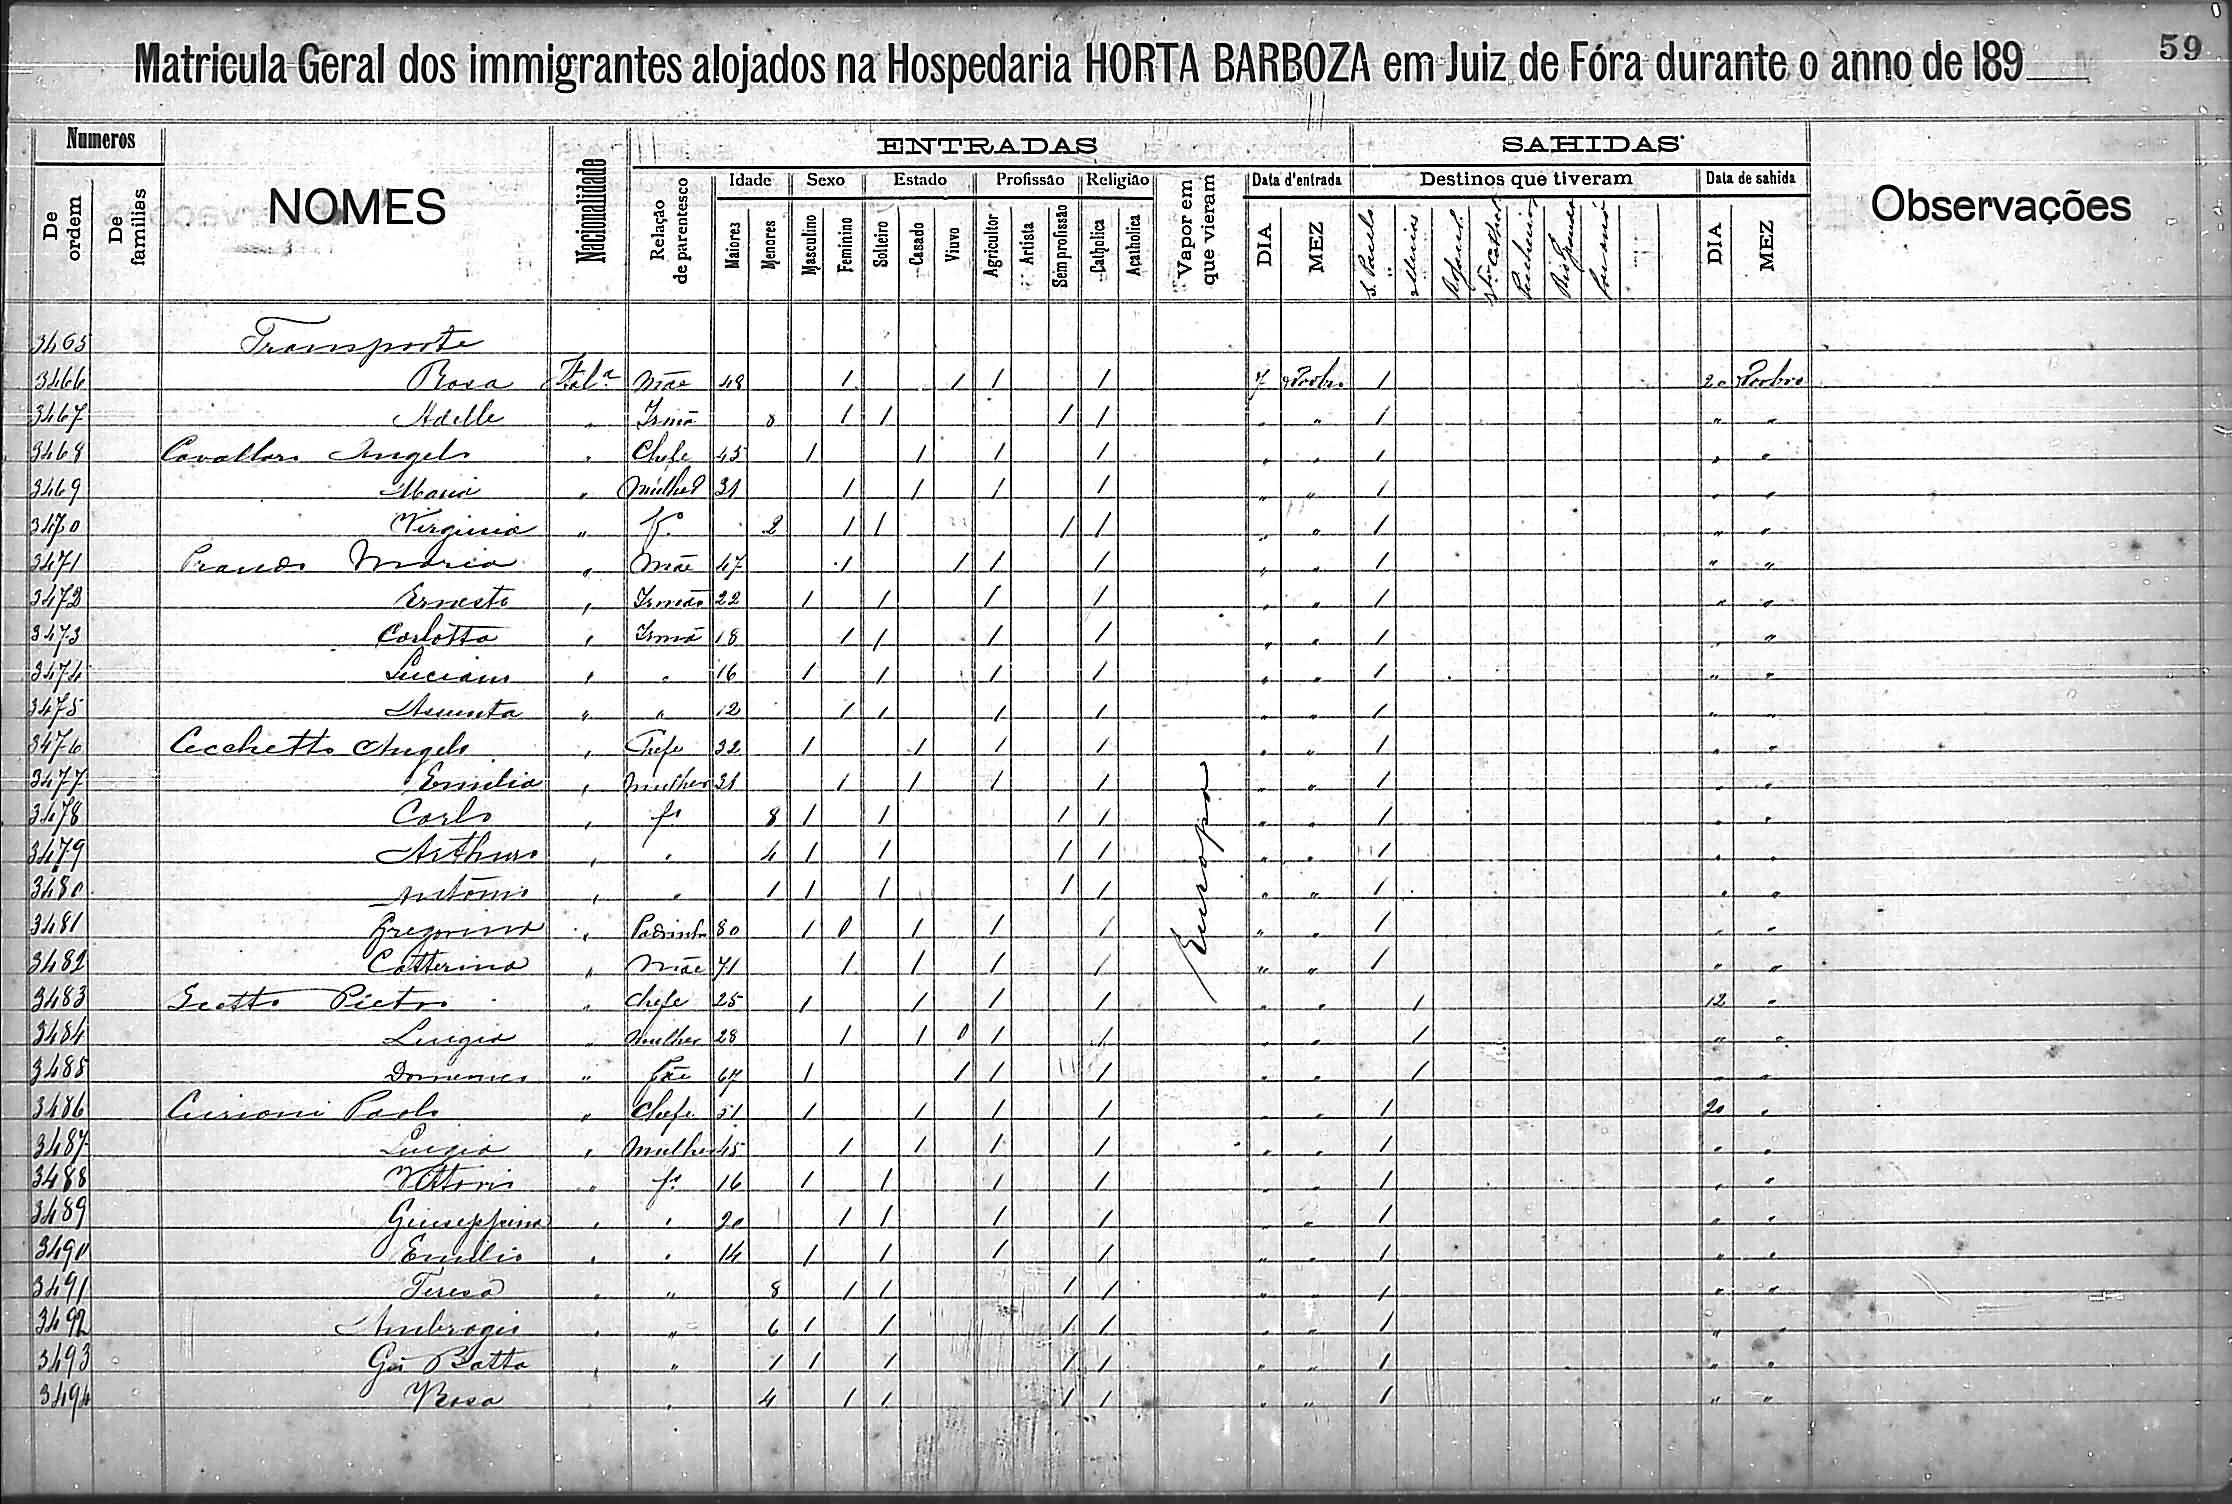 59
Matricula Geral dos immigrantes alojados na Hospedaria HORTA BARBOZA em Juiz de Fóra durante o anno de 189
Numeros ENTRADAS SAHIDAS
De ordem De familias NOMES Nacionalidade Relação de parentesco Idade Sexo Estado Profissão Religião Vapor em que vieram Data d'entrada Destinos que tiveram Data de sahida Observações
Maiores Menores Masculino Feminino Solteiro Casado Viuvo Agricultor Artista Sem profissão Catholica Acatholica DIA MEZ S. Paulo Minas DIA MEZ
3465 Transporte
3466 Rosa Ital.ª Mãe 48 1 1 1 1 7 1 20
3467 Adelle " Irmã 8 1 1 1 1 " " 1 " "
3468 Cavallaro Angelo " Chefe 45 1 1 1 1 " " 1 " "
3469 Maria " Mulher 31 1 1 1 1 " " 1 " "
3470 Virginia " fº 2 1 1 1 1 " " 1 " "
3471 Maria " Mãe 47 1 1 1 1 " " 1 " "
3472 Ernesto " Irmão 22 1 1 1 1 " " 1 " "
3473 Carlotta " Irmã 18 1 1 1 1 " " 1 "
3474 Luciano " " 16 1 1 1 1 " " 1 " "
3475 Assunta " " 12 1 1 1 1 " " 1 " "
3476 Cecchetto Angelo " Chefe 32 1 1 1 1 " " 1 " "
3477 Emilia " Mulher 31 1 1 1 1 " " 1 " "
3478 Carlo " fº 8 1 1 1 1 " " 1 " "
3479 Arthuro " " 4 1 1 1 1 " " 1 " "
3480 Antonio " " 1 1 1 1 1 " " 1 " "
3481 " Padrinho 80 1 0 1 1 1 " " 1 " "
3482 Catterina " Mãe 71 1 1 1 1 Europa " " 1 " "
3483 Pietro " Chefe 25 1 1 1 1 " " 1 12 "
3484 Luigia " Mulher 28 1 1 0 1 1 " " 1 " "
3485 Domenico " Pãe 67 1 1 1 1 " " 1 " "
3486 Paolo " Chefe 51 1 1 1 1 " " 1 20 "
3487 Luigia " Mulher 45 1 1 1 1 " " 1 " "
3488 Vittorio " fº 16 1 1 1 1 " " 1 " "
3489 Giuseppina " " 20 1 1 1 1 " " 1 " "
3490 Emilio " " 14 1 1 1 1 " " 1 " "
3491 Teresa " " 8 1 1 1 1 " " 1 " "
3492 Ambrogio " " 6 1 1 1 1 " " 1 " "
3493 Gio Batta " " 1 1 1 1 1 " " 1 " "
3494 Rosa " " 4 1 1 1 1 " " 1 " "